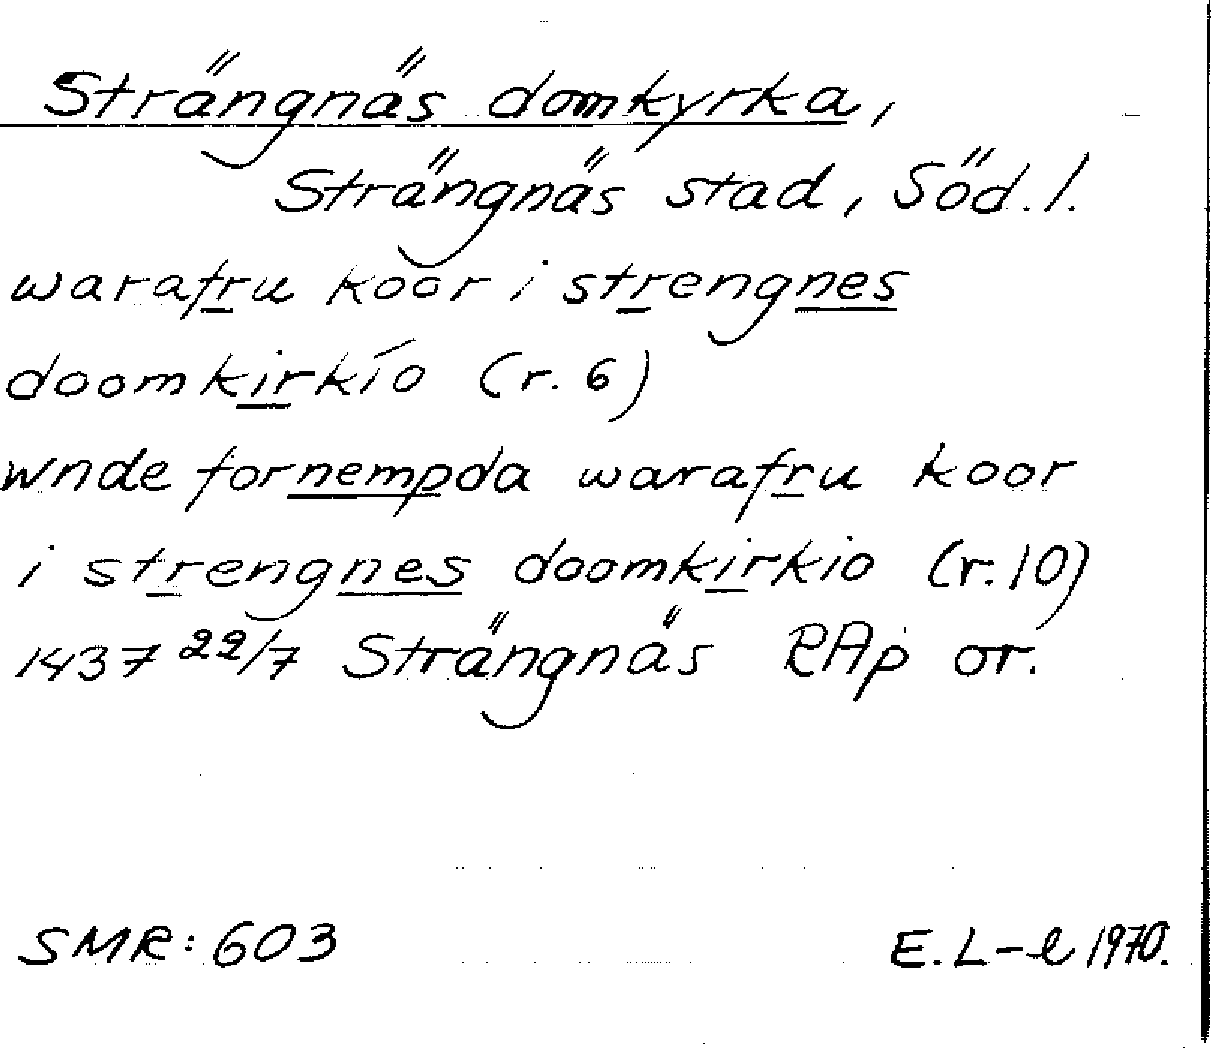 Strängnäs domkyrka,
Strängnäs stad, Söd. l.
warafru koor i strengnes
doomkirkio (r. 6)
wnde fornempda warafru koor
i strengnes doomkirkio (r. 10)
1437 22/7 Strängnäs RAp or.
SMR: 603
E. L-l 1970.